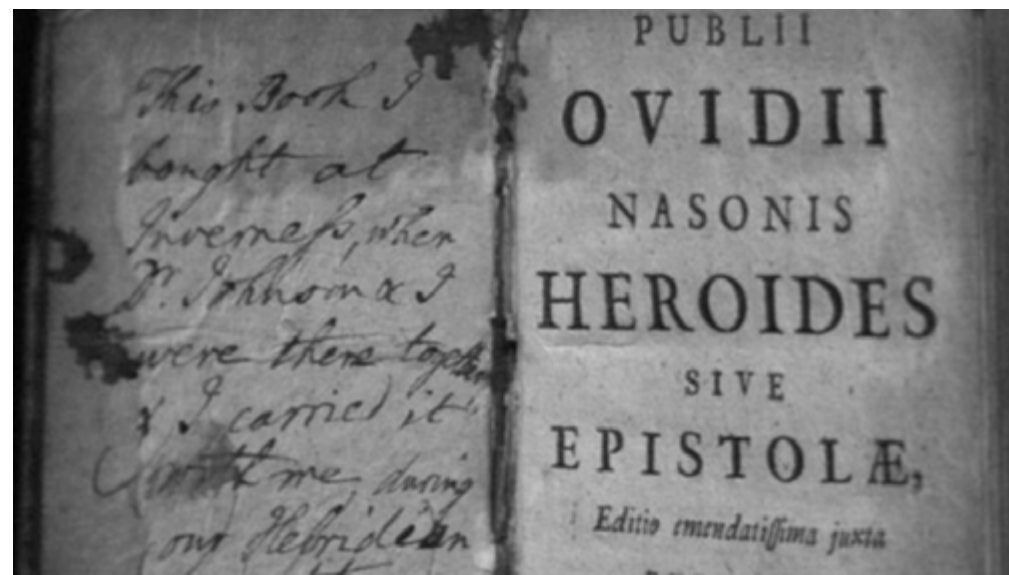 This Book I
bought at
Inverneſs, when
Dr. Johnson & I
were there together
& I carried it
with me, during
our Hebridean
PUBLII
OVIDII
NASONIS
HEROIDES
SIVE
EPISTOLÆ,
Editio emendatiſſima juxta